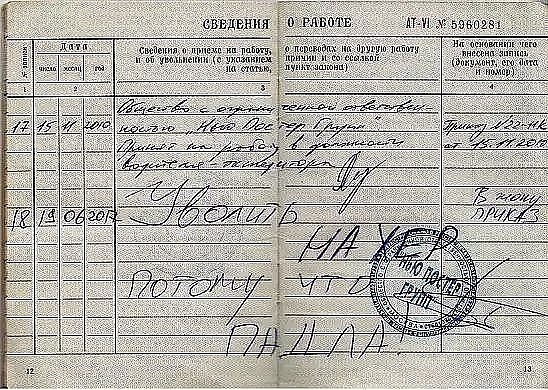 СВЕДЕНИЯ О РАБОТЕ АТ-VI № 5960281
№ записи
Дата
число месяц год
Сведения о приеме на работу, о переводах на другую работу
и об увольнении (с указанием причин и со ссылкой
на статью, пункт закона)
На основании чего
внесена запись
(документ, его дата
и номер)
1 2 3 4
Общество с ограниченной ответствен-
17 15 11 2010 ностью „Нью Постер Групп" Приказ №22-НК
Принят на работу в должности от 15.11.2010
водителя-экспедитора
18 19 06 2017 УВОЛИТЬ В жопу
ПРИКАЗ
НА ХЕР
ПОТОМУ ЧТО
ПАДЛА.
НЬЮ ПОСТЕР
ГРУПП
12 13